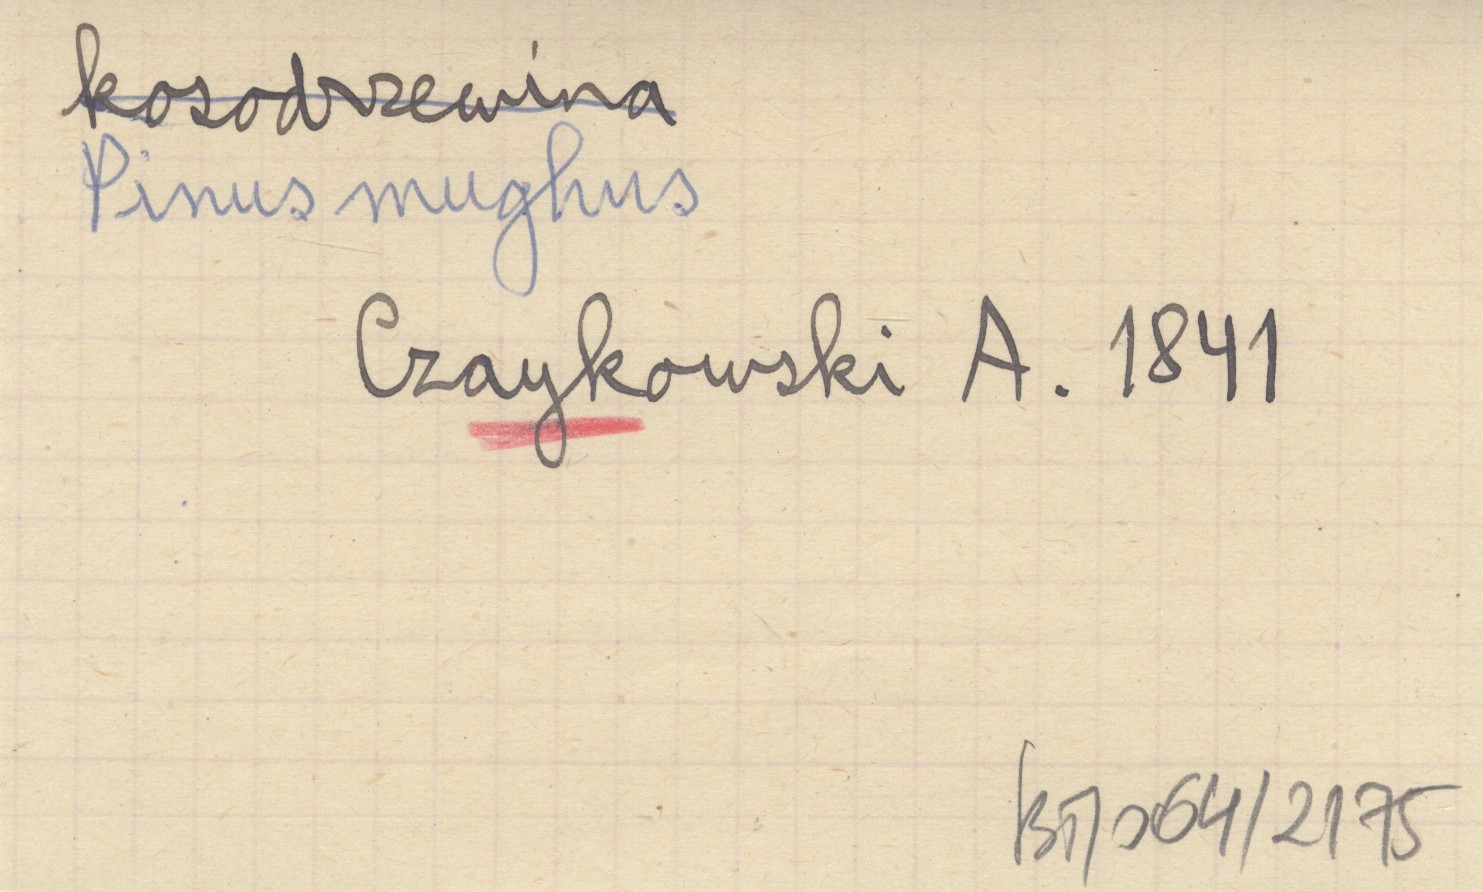 kosodrzewina
Pinus mughus
Czaykowski A. 1841
64/2175